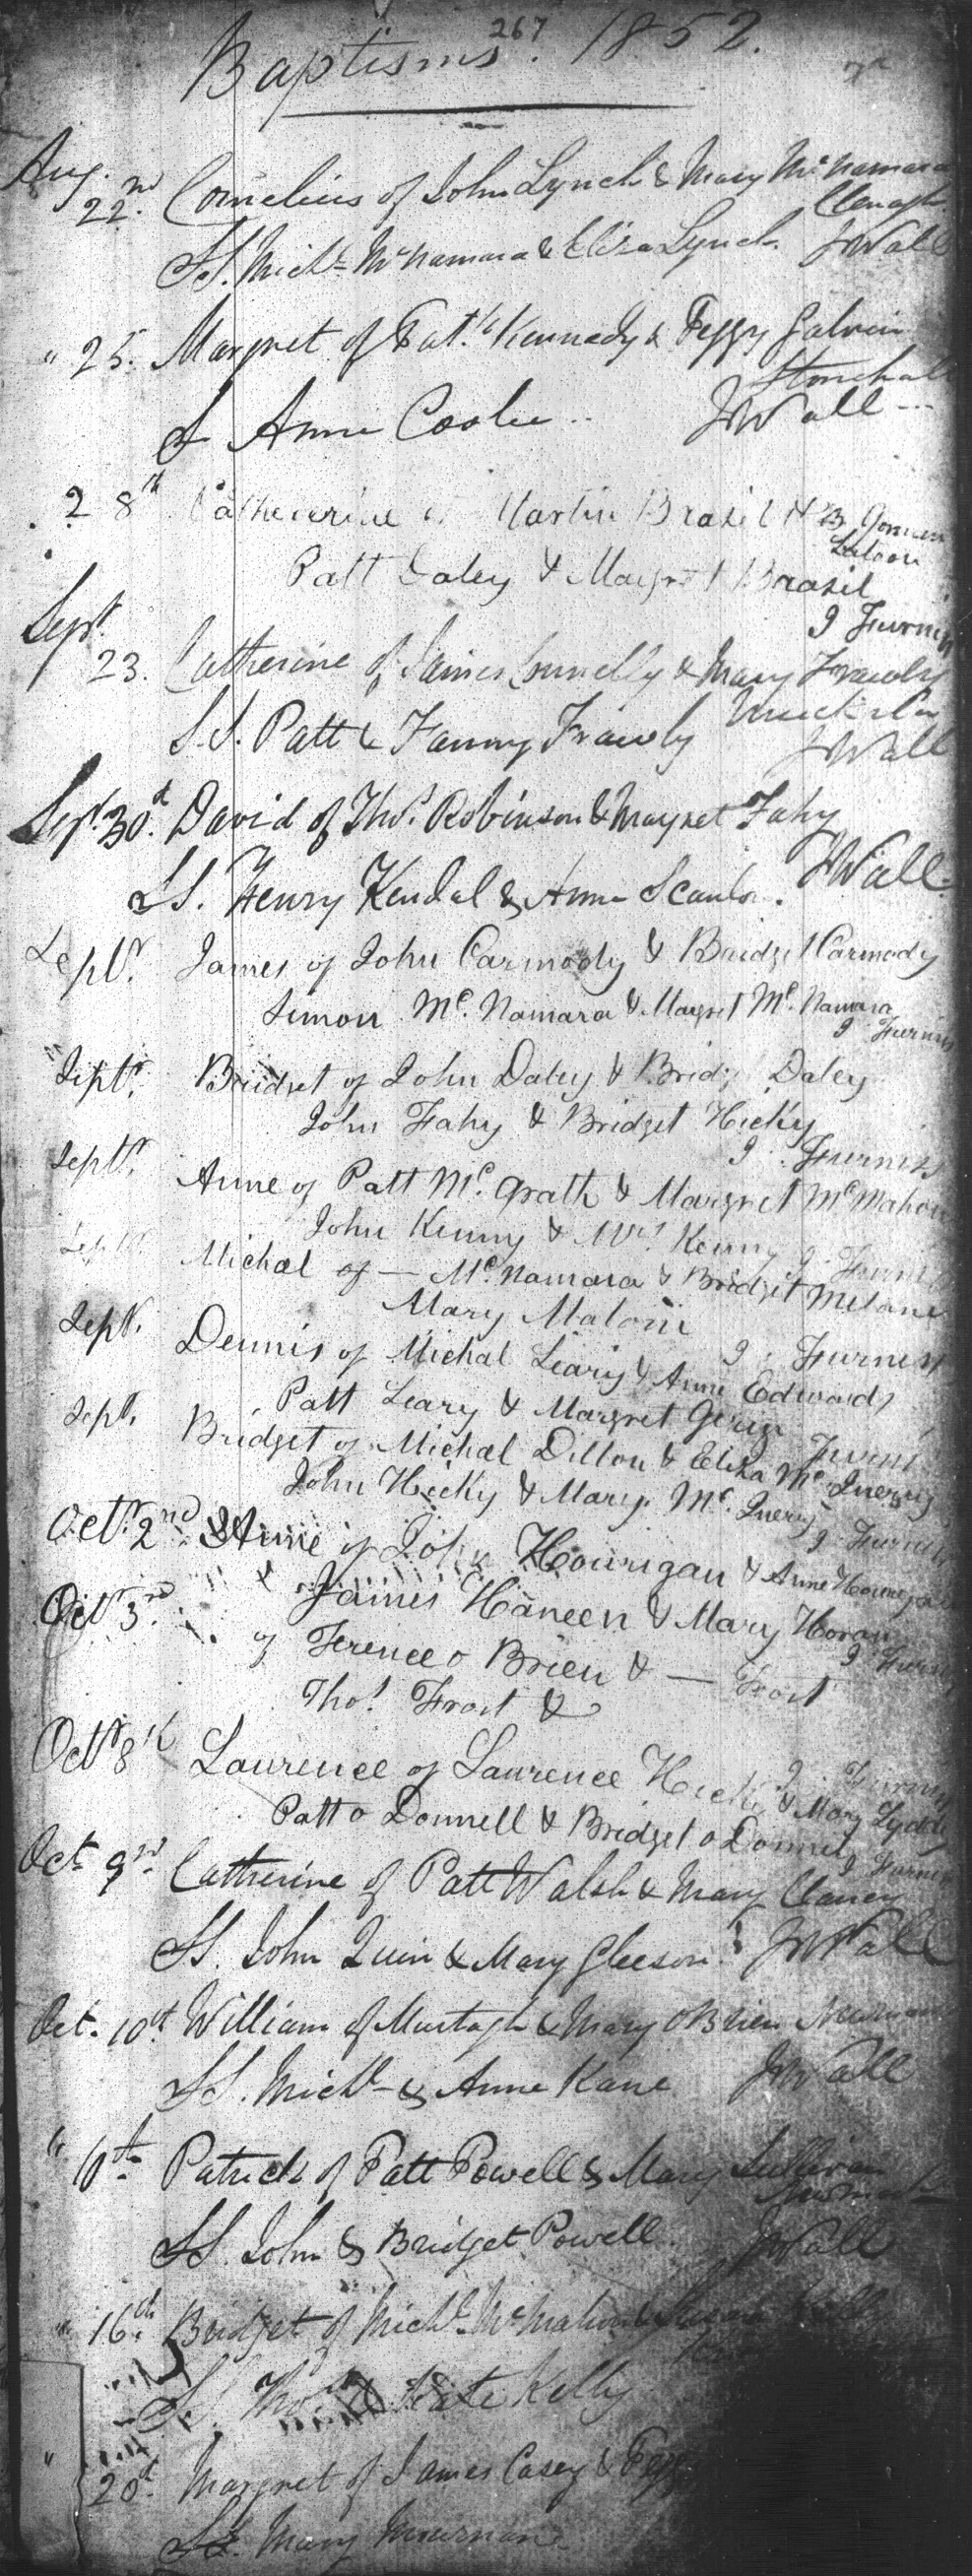 267
Baptisms. 1852.
Aug.
22nd. Cornelius of John Lynch & Mary McNamara
Clonagh.
SS. Michl McNamara & Eliza Lynch. JWall
" 25. Margret of Pat.k Kennedy & Peggy Galvin
Stonehall
S Anne Coolee .. JWall
28th Catheurine Martin Brasil & B Gorman
Patt Daley & Margret Brasil
J Furniss
Sept.
23. Catherine of James Connelly & Mary Frawly
S.S. Patt & Fanny Frawly
JWall
Sept. 30th. David of Thos. Robinson & Margret Fahy
SS. Henry Kendal & Anne Scanlon. JWall
Septr. James of John Carmody & Bridget Carmody
Simon Mc. Namara & Margret Mc. Namara
J Furniss
Septr. Bridget of John Daley & Bridg Daley
John Fahy & Bridget Hicky
J. Furniss
Septr. Anne of Patt Mc. Grath & Margret McMahon
John Kenny & Mrs. Kenny J. Furniss
Septr. Michal of — Mc. Namara & Bridget
Mary Malone
J. Furniss
Septr. Dennis of Michal Leary & Anne Edwards
Patt Leary & Margret
Furniss
Sept. Bridget of Michal Dillon & Eliza Mc. Inerny
John Hicky & Mary Mc. Inerny
J. Furniss
Octr. 2nd Anne of John Hourigan & Anne Hourigan
James Haneen & Mary Horan
J Furniss
Octr 3rd. of Terence o Brien & — Frost
Thos. Frost &
J. Furniss
Octr 8th Laurence of Laurence Hicky & Mary
Patt o Donnell & Bridget o Donnell
J Furniss
Oct. 9th. Catherine of Patt Walsh & Mary Clancy
SS. John Quin & Mary Gleeson. JWall
Oct. 10th William of Murtagh & Mary OBrien Newmarket
SS. Michl & Anne Kane JWall
" 10th Patrick of Patt Powell & Mary Sullivan
Newmarket
SS. John & Bridget Powell. JWall
" 16th. Bridget of Michl. McMahon &
SS. Thos. & Kate Kelly
" 20th. Margret of James Casey & Peggy
SS. Mary